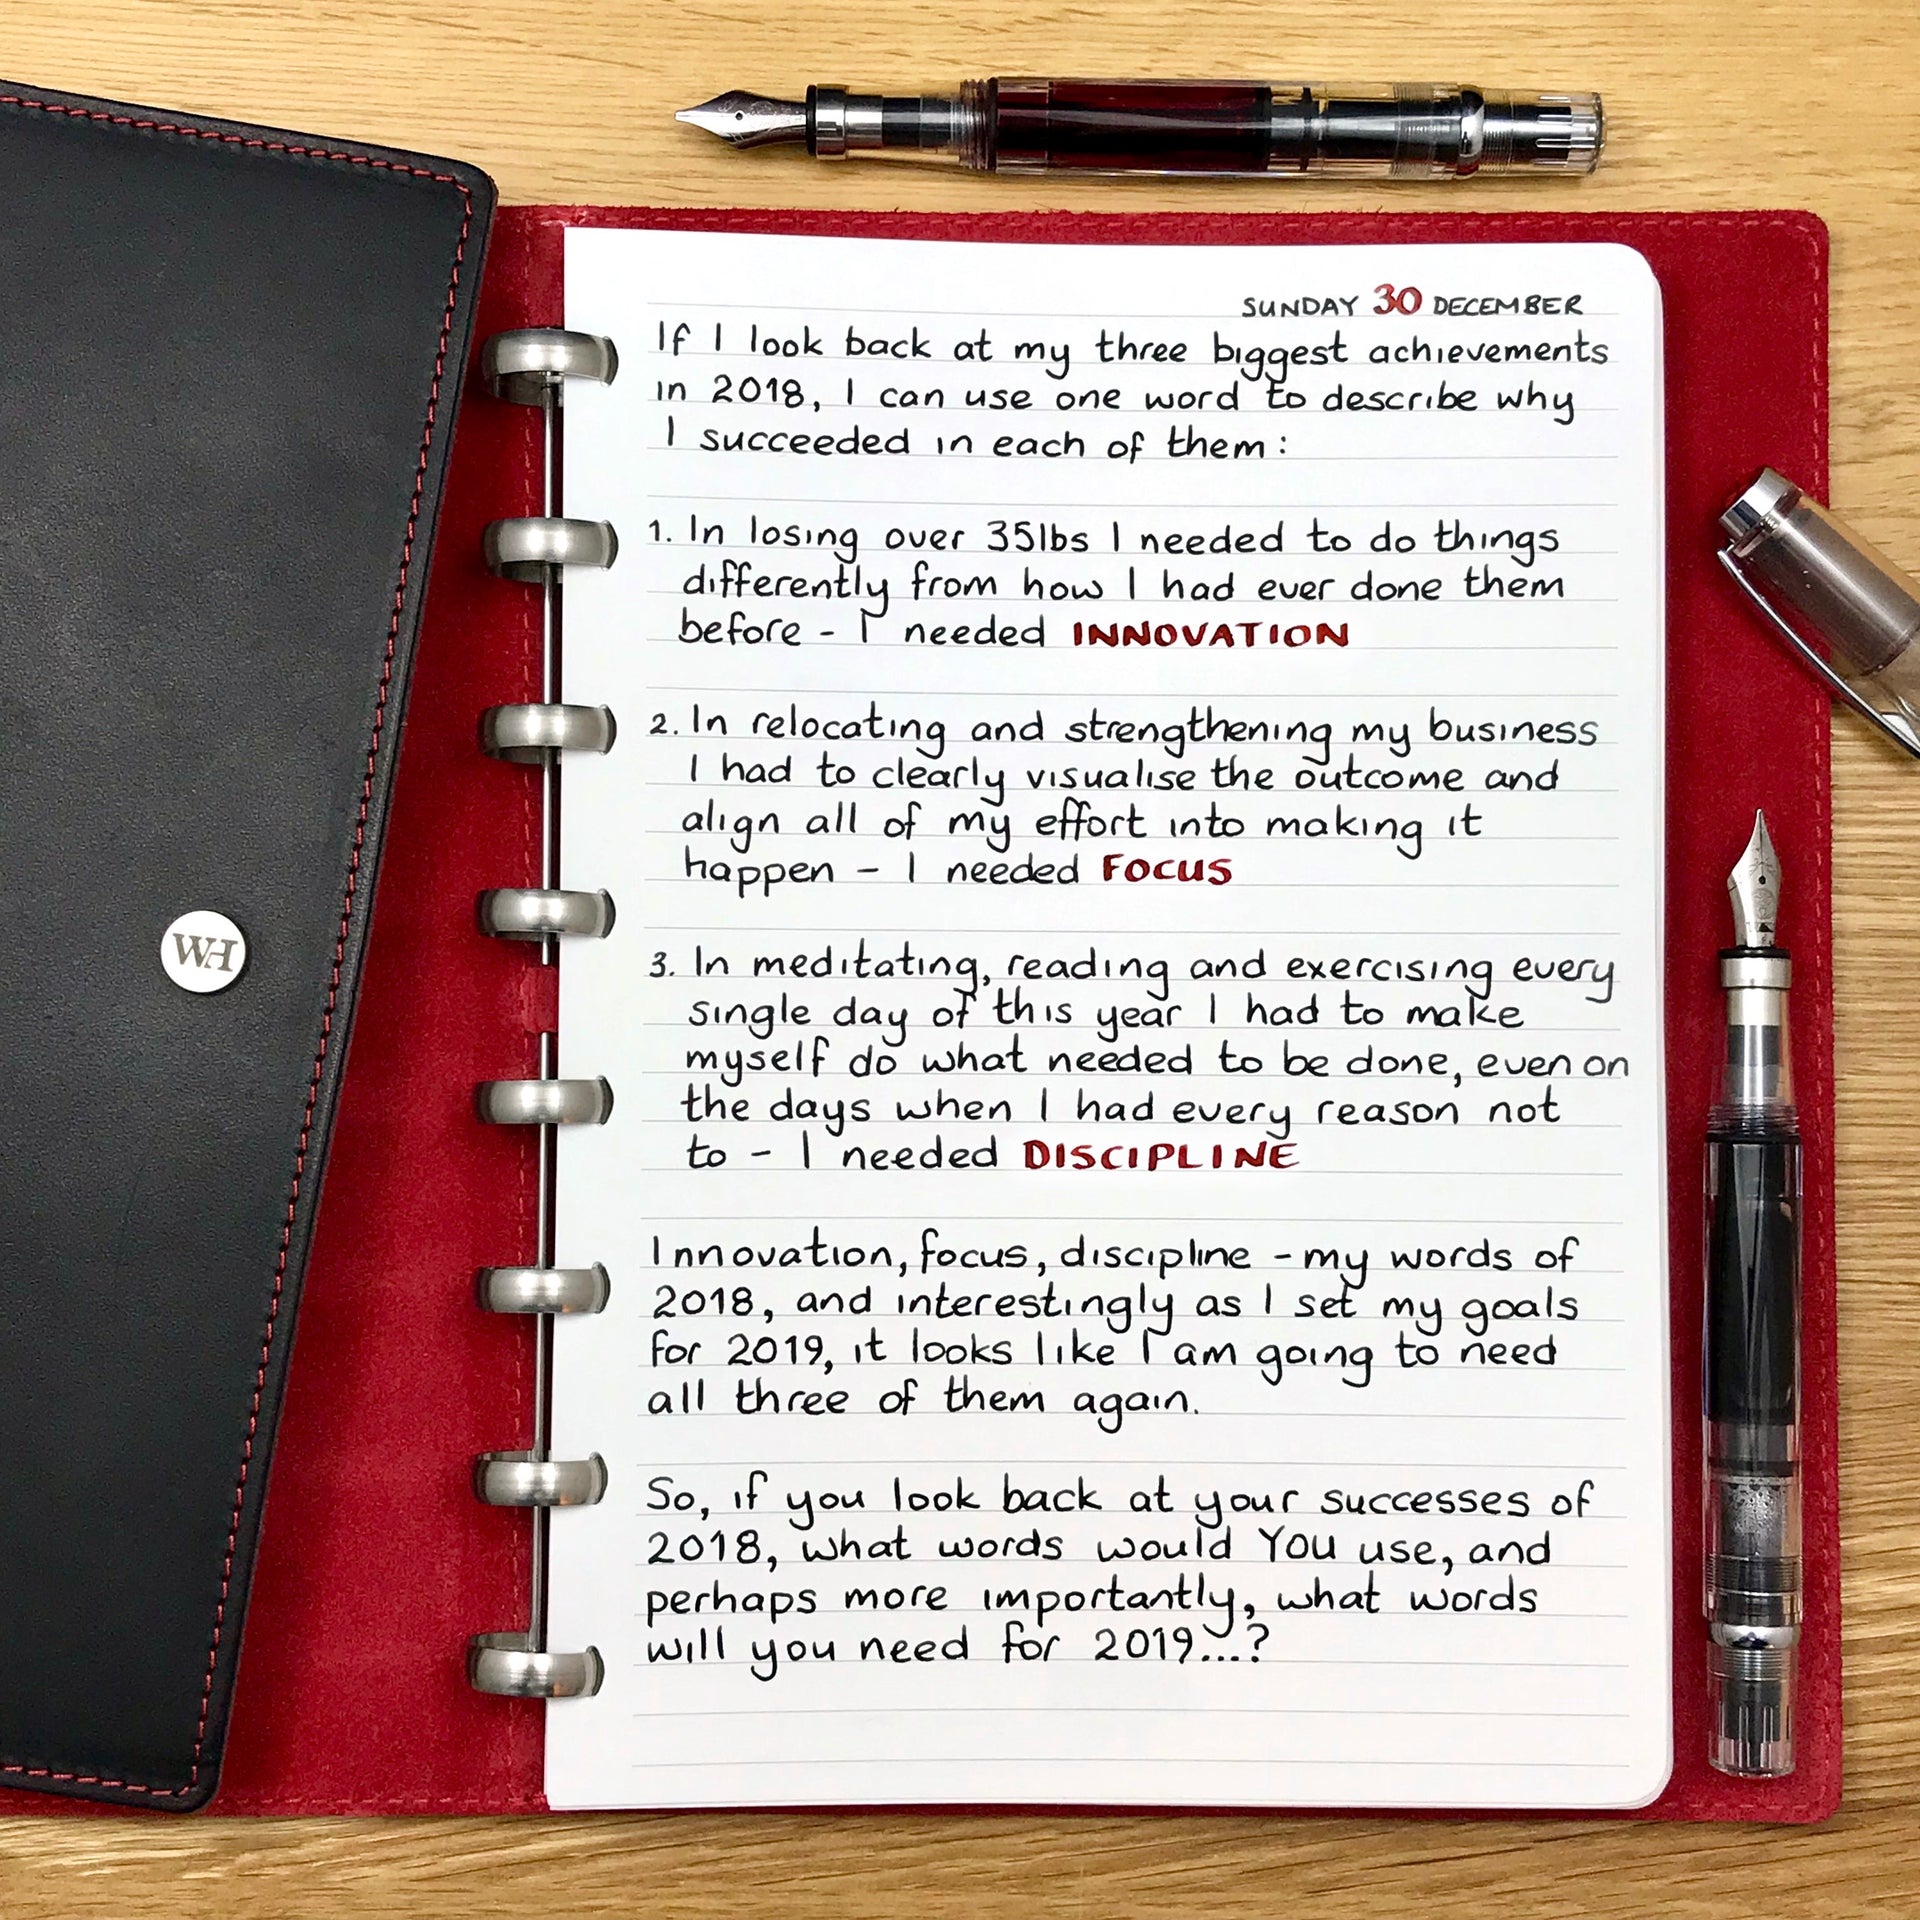 SUNDAY 30 DECEMBER
If I look back at my three biggest achievements
in 2018, I can use one word to describe why
I succeeded in each of them:
1. In losing over 35lbs I needed to do things
differently from how I had ever done them
before - I needed INNOVATION
2. In relocating and strengthening my business
I had to clearly visualise the outcome and
align all of my effort into making it
happen - I needed FOCUS
3. In meditating, reading and exercising every
single day of this year I had to make
myself do what needed to be done, even on
the days when I had every reason not
to - I needed DISCIPLINE
Innovation, focus, discipline - my words of
2018, and interestingly as I set my goals
for 2019, it looks like I am going to need
all three of them again.
So, if you look back at your successes of
2018, what words would YOU use, and
perhaps more importantly, what words
will you need for 2019...?
WH